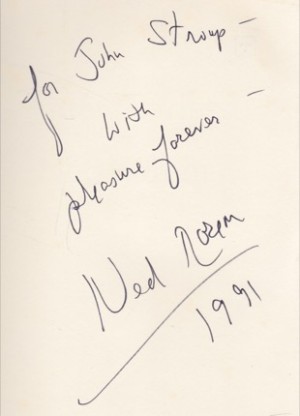 for John Stroup –
with
pleasure forever –
Ned Rorem
1991